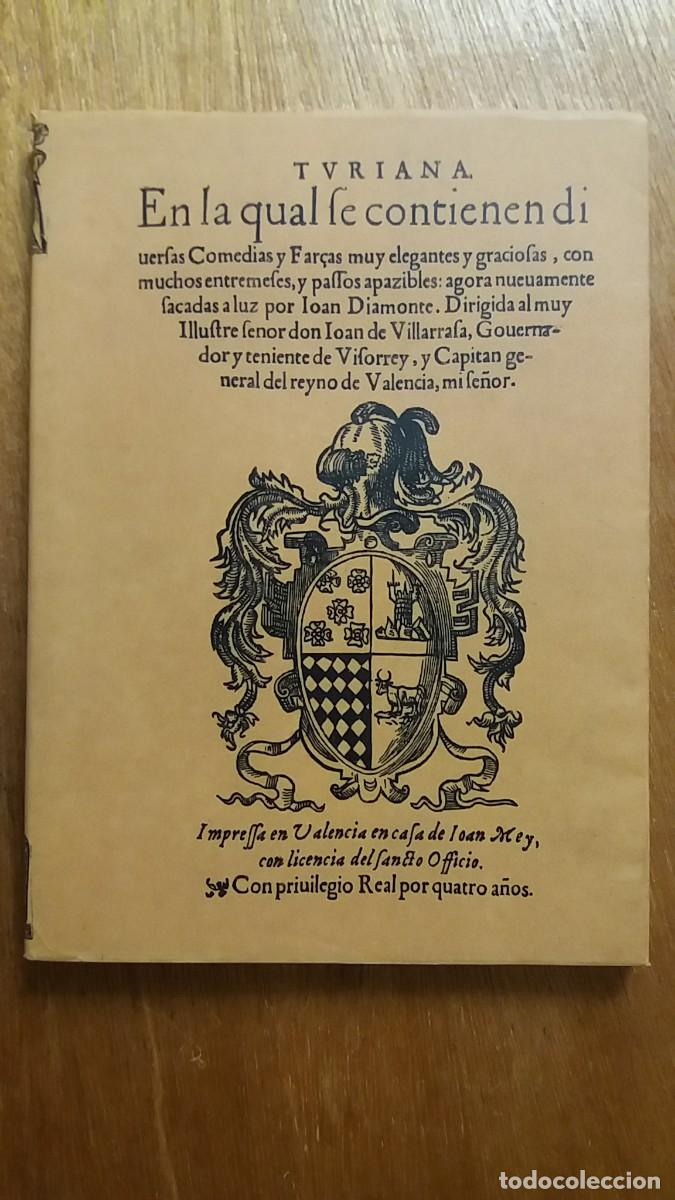 TVRIANA.
En la qual ſe contienen di
uerſas Comedias y Farças muy elegantes y gracioſas, con
muchos entremeſes, y paſſos apazibles: agora nueuamente
ſacadas a luz por Ioan Diamonte. Dirigida al muy
Illuſtre ſenor don Ioan de Villarraſa, Gouerna-
dor y teniente de Viſorrey, y Capitan ge-
neral del reyno de Valencia, mi ſeñor.
Impreſſa en Valencia en caſa de Ioan Mey,
con licencia del ſancto Officio.
Con priuilegio Real por quatro años.
todocoleccion